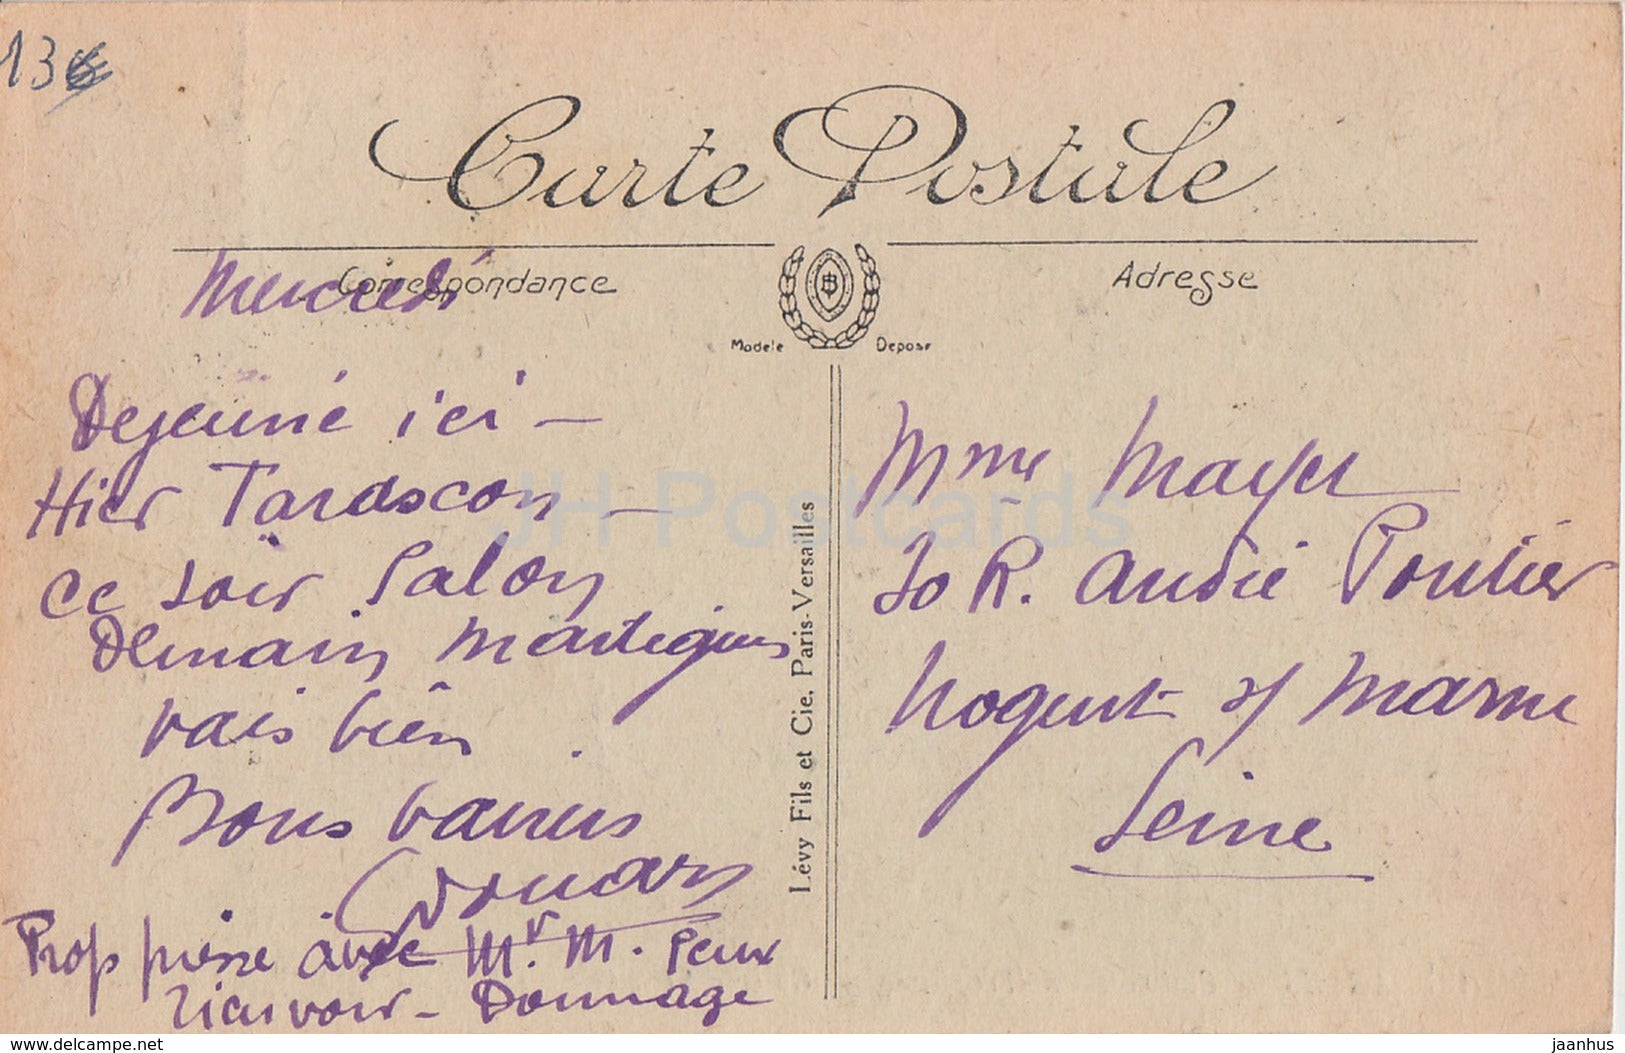 13
Carte Postale
Correspondance
Adresse
Modele Depose
Mercredi
Dejeuné ici —
Hier Tarascon —
ce soir Salon
Demain Martigues
vais bien.
Bons baisers
Edouard
Trop pressé avec Mr M. peux
rien voir - Dommage
Lévy Fils et Cie, Paris-Versailles
Mme Mayer
30 R. André Pontier
Nogent s/ Marne
Seine
JH Postcards
www.delcampe.net
jaanhus